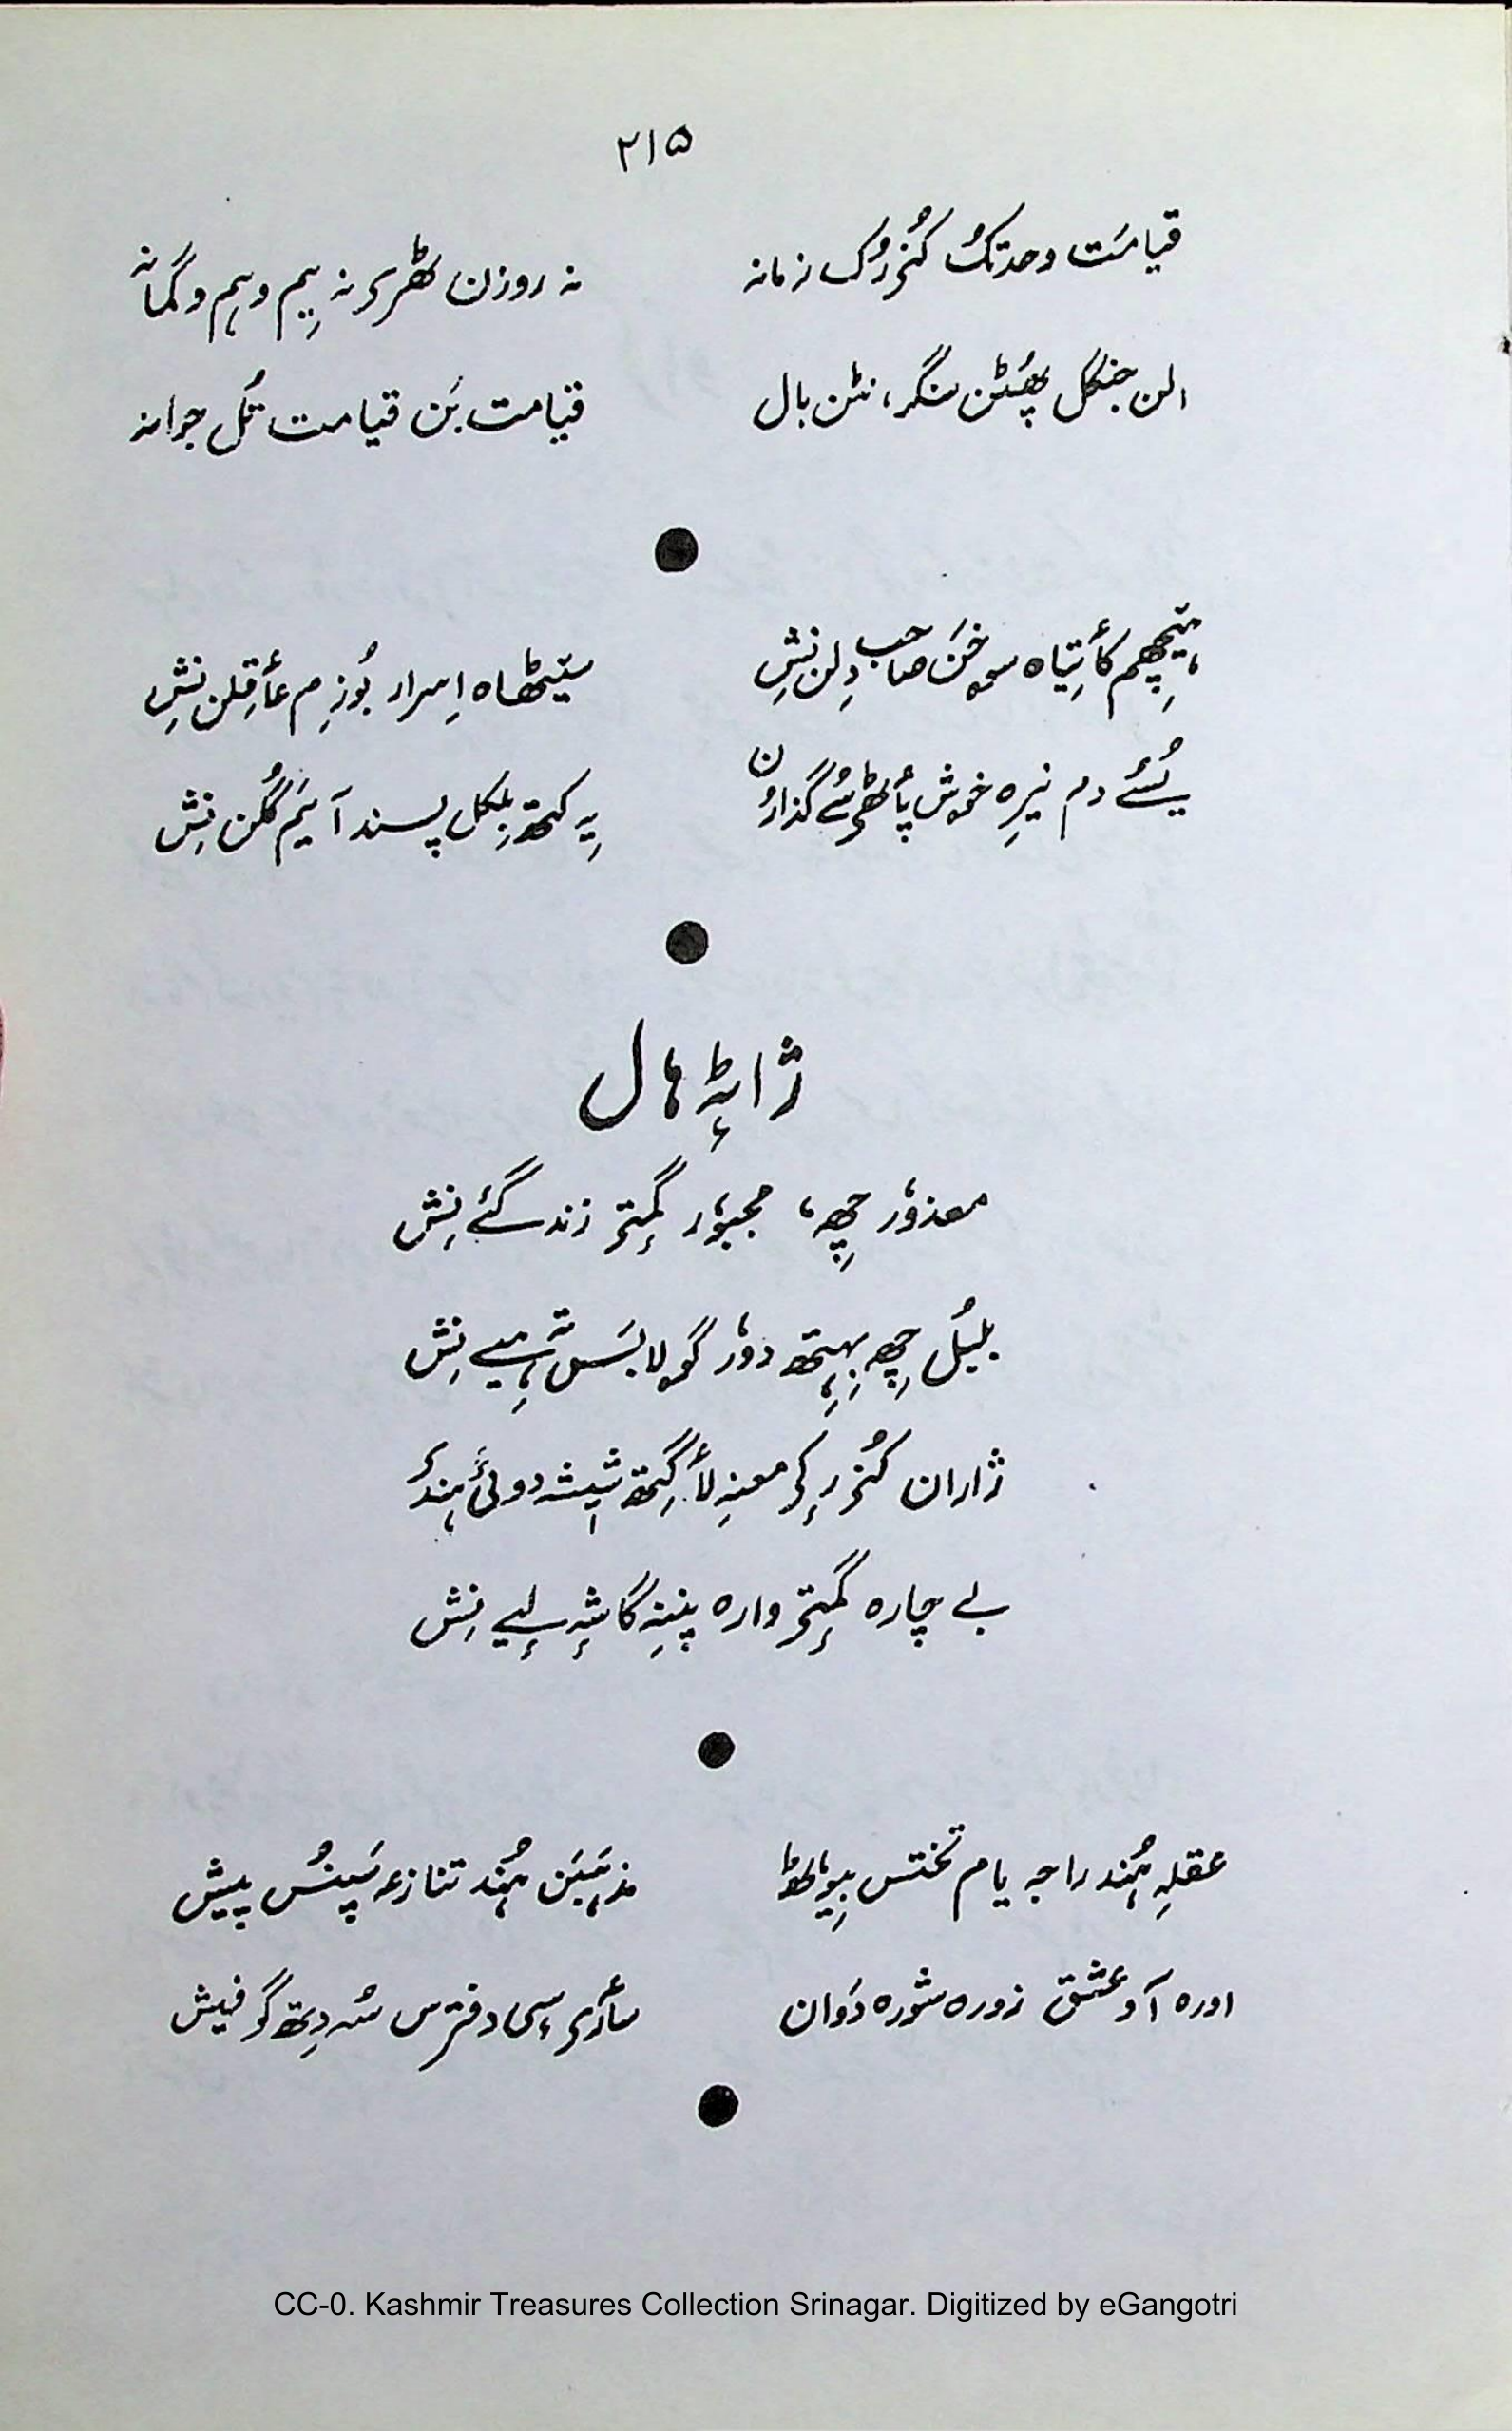 ۲۱۵
قیامَت وحدتکُ کُنٛرُک زمانہ
نہ روزن ٹھٔری نہ بیم وہم و گمانہ
الن جنگل پھُٹن سنگر، نٹن بال
قیامت بَن قیامت تُل جوانہ
ہیٚچھِم کأتیاہ سوخَن صاحب دِلن نِشِ
سیٚٹھاہ اِسرار بُوزِم عأقِلن نِشِ
یُسُے دم نیرِ خوش پأٹھی سُے گذارُن
یہِ کتھ بِلکل پسند آیَم گُلن نِش
ژاٹہٕ ہال
معذوٗر چھِہ، مجبوٗر گٔمٕتی زندگیٔ نِش
بلبُل چھِہ بِہِتھ دوٗر گولابَس تہٕ ہیے نِش
ژاران کُنٛرٕکی معنہِ لأگِتھ شیٖشہ دویی ہٕندی
بے چارہ گٔمٕتی وارہ پننہِ گاشہٕ لیے نِش
عقلہِ ہُند راجہ یام تختس بیوٗٹھ
مذہبَن ہُند تنازعہ سَپنُس پیش
اورہ آو عشق زورہ شورہ دَوان
سأری سٕی دفترس سُہ دِتھ گو فیش
CC-0. Kashmir Treasures Collection Srinagar. Digitized by eGangotri